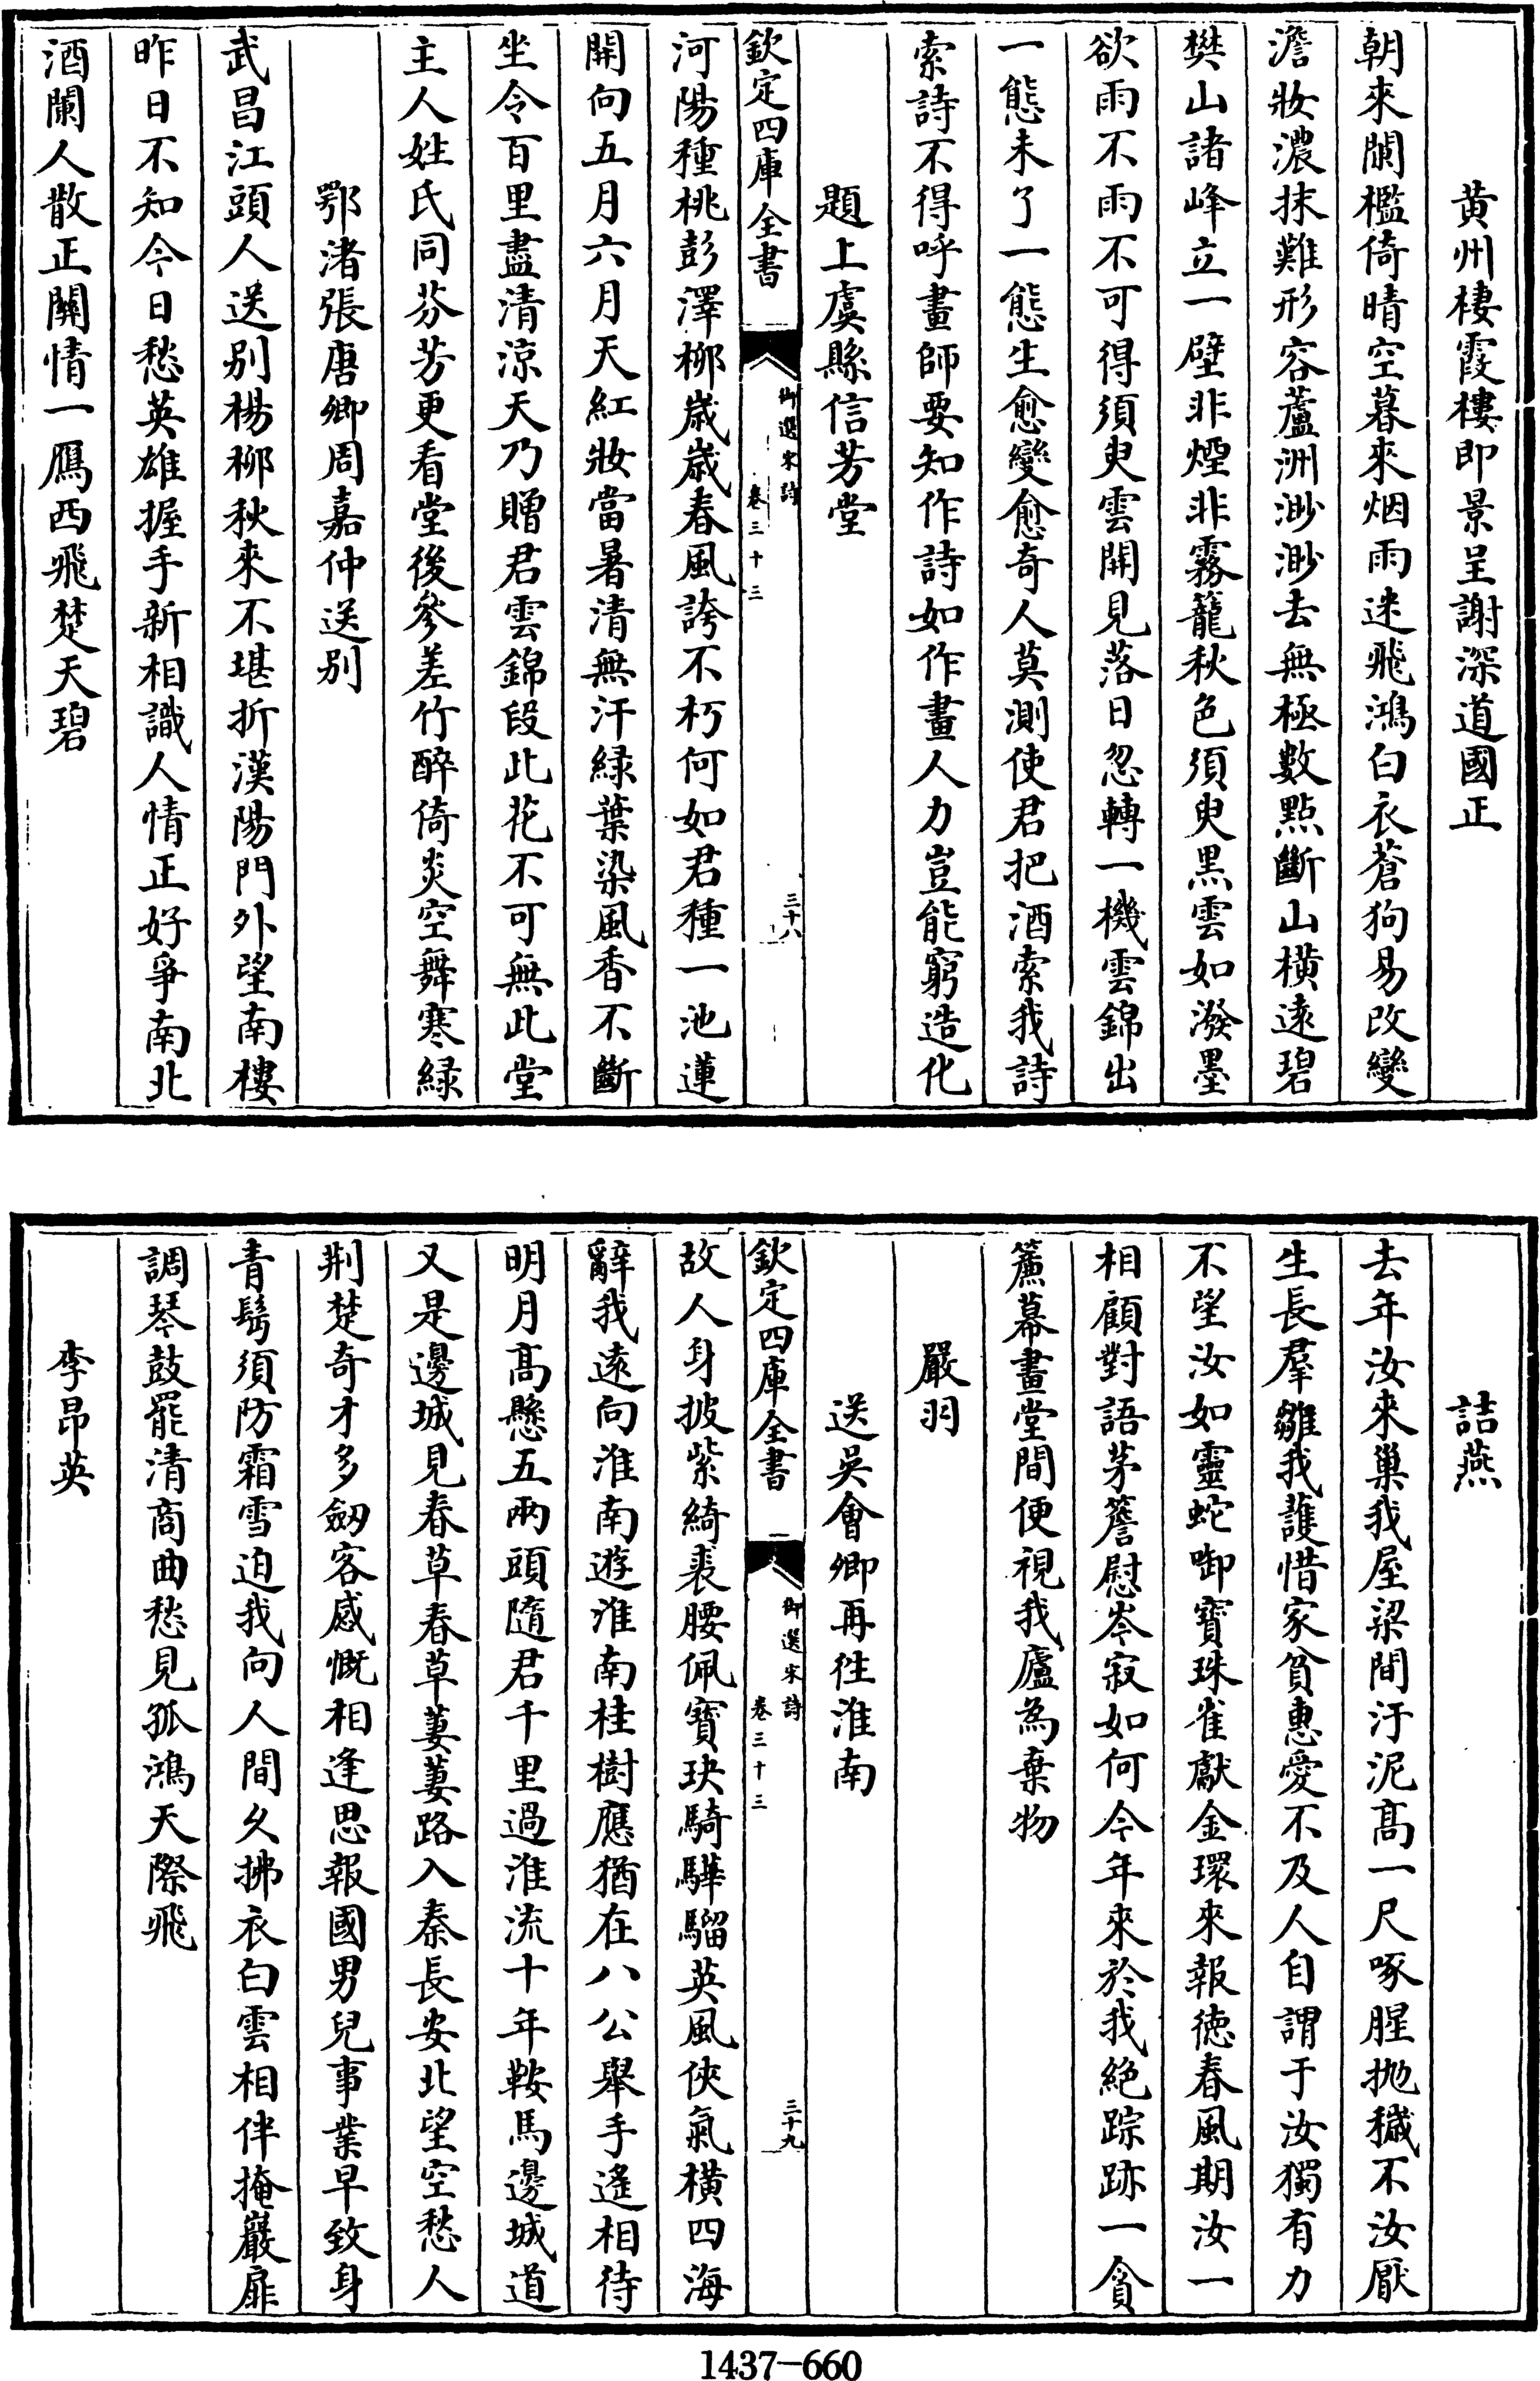 黄州棲霞樓即景呈謝深道國正
朝來闌檻倚晴空暮來烟雨迷飛鴻白衣蒼狗易改變
澹妝濃抹難形容蘆洲渺渺去無極數點斷山橫遠碧
樊山諸峰立一壁非煙非霧籠秋色須臾黒雲如潑墨
欲雨不雨不可得須臾雲開見落日忽轉一機雲錦出
一態未了一態生愈變愈奇人莫測使君把酒索我詩
索詩不得呼畫師要知作詩如作畫人力豈能窮造化
題上虞縣信芳堂
欽定四庫全書
御選宋詩
卷三十三
三十八
河陽種桃彭澤柳歳歳春風誇不朽何如君種一池蓮
開向五月六月天紅妝當暑清無汗緑葉染風香不斷
坐令百里盡清涼天乃贈君雲錦段此花不可無此堂
主人姓氏同芬芳更看堂後參差竹醉倚炎空舞寒緑
鄂渚張唐卿周嘉仲送别
武昌江頭人送别楊柳秋來不堪折漢陽門外望南樓
昨日不知今日愁英雄握手新相識人情正好爭南北
酒闌人散正關情一鴈西飛楚天碧
詰燕
去年汝來巢我屋梁間汙泥髙一尺啄腥抛穢不汝厭
生長羣雛我護惜家貧惠愛不及人自謂于汝獨有力
不望汝如靈蛇啣寳珠雀獻金環來報徳春風期汝一
相顧對語茅簷慰岑寂如何今年來於我絶踪跡一貪
簾幕畫堂間便視我廬為棄物
嚴羽
送吳會卿再徃淮南
欽定四庫全書
御選宋詩
卷三十三
三十九
故人身披紫綺裘腰佩寳玦騎驊騮英風俠氣橫四海
辭我遠向淮南遊淮南桂樹應猶在八公舉手遙相待
明月髙懸五兩頭隨君千里過淮流十年鞍馬邊城道
又是邊城見春草春草萋萋路入秦長安北望空愁人
荆楚奇才多劒客感慨相逢思報國男兒事業早致身
青鬂須防霜雪迫我向人間久拂衣白雲相伴掩巖扉
調琴鼓罷清商曲愁見孤鴻天際飛
李昂英
1437-660